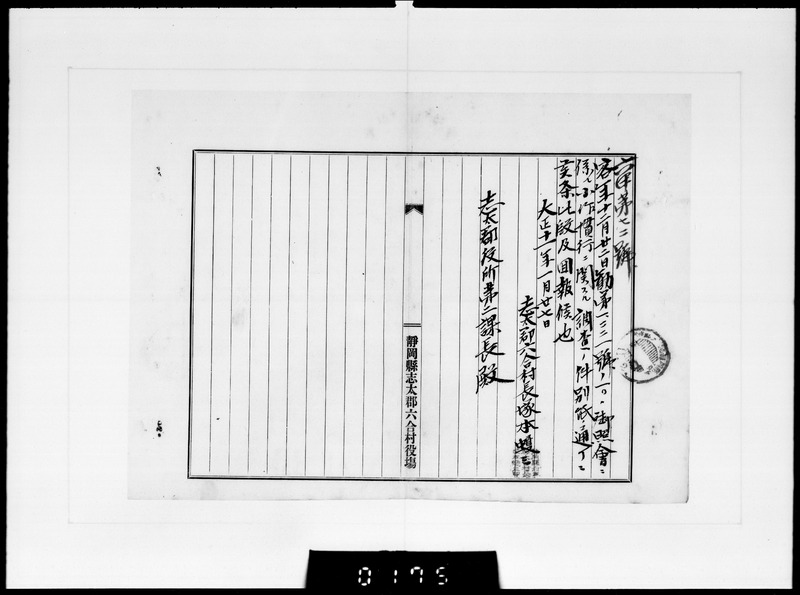 第七二號
客年十二月廿二日勸第一三三一號ノ一〇ヲ以御照會ニ
係ル小作慣行ニ関スル調査ノ件別紙ノ通リニ
有之候條此段及回報候也
大正十一年一月廿七日
志太郡六合村長塚本
志太郡役所第二課長殿
靜岡縣志太郡六合村役場
0175